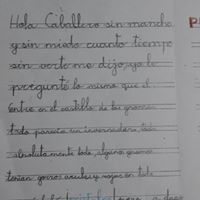 Hola Caballero sin mancha
y sin miedo cuanto tiempo
sin verte me dijo, yo le
pregunte lo mismo que el.
Entre en el castillo de los gnomos
todo parecia un invernadero, todo
absolutamente todo, algunos gnomos
tenian gorros azules y rojos en todo